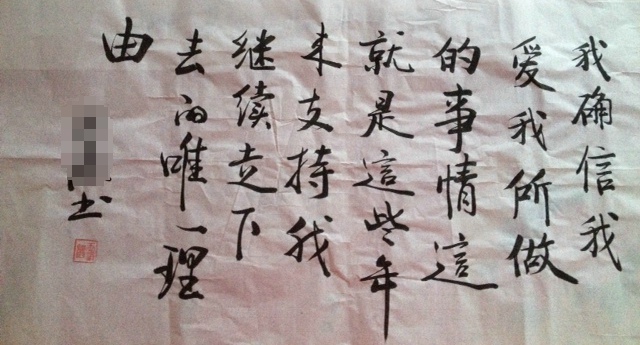 我确信我
爱我所做
的事情這
就是這些年
来支持我
继续走下
去的唯一理
由